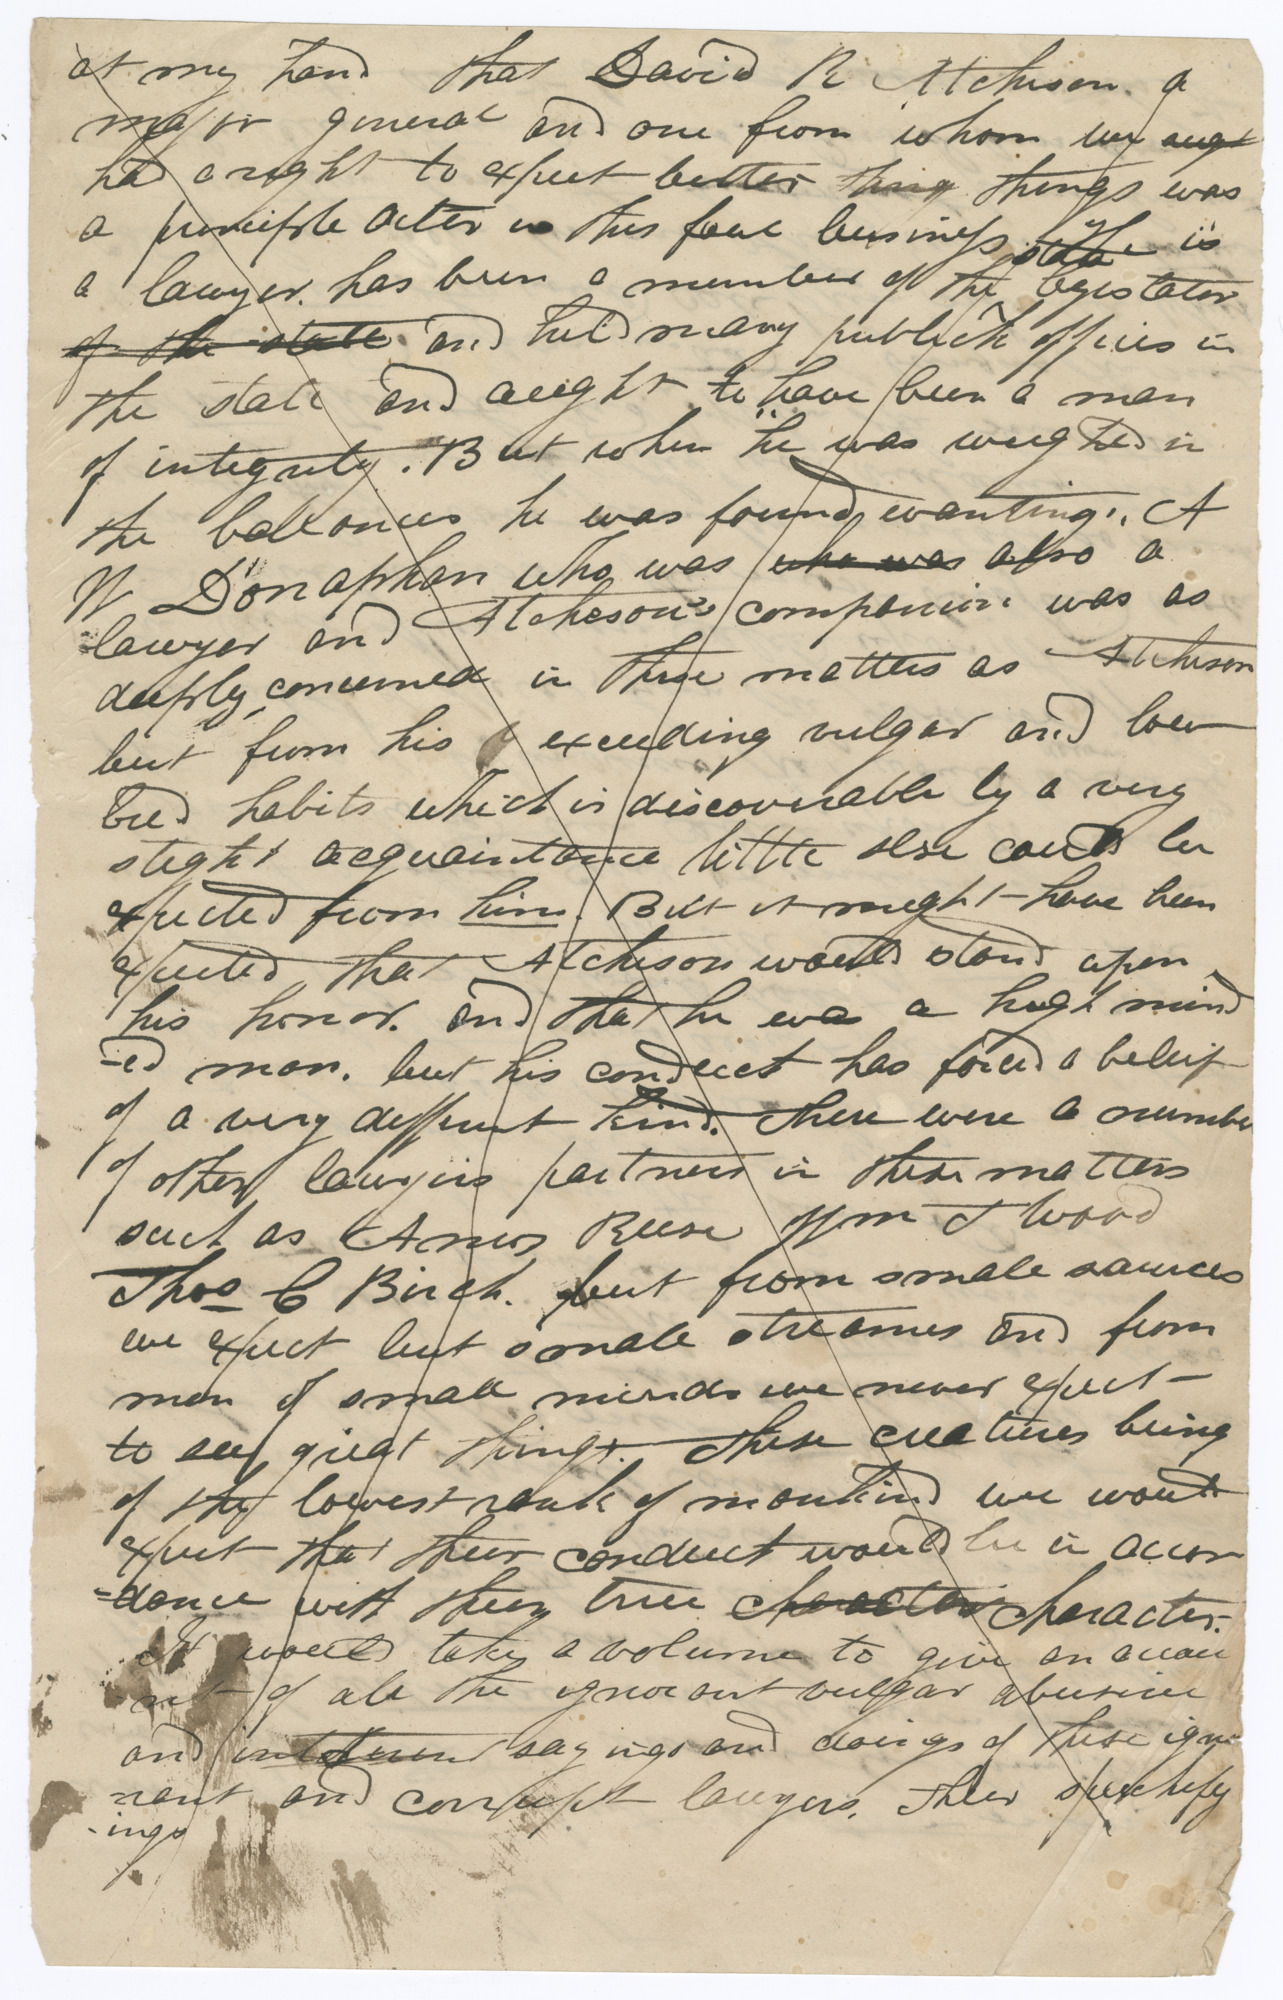 at my hand that David R Atchison. a
major general and one from whom we aught
had a right to expect better thing things was
a principle acter in this foul business state He is
a lawyer. has been a member of the legislator
of the state and held many publick offices in
the state and aught to have been a man
of integrity. But when he was weighed in
the ballances he was found wanting. A
W Donaphan who was who was also a
lawyer and Atcheson's companion was as
deeply concerned in these matters as Atchison
but from his exceeding vulgar and low
bred habits which is discoverable by a very
slight acquaintance little else could be
expected from him. But it might have been
expected that Atchison would stand upon
his honor. and that he was a high mind
-ed man. but his conduct has forced a beleif
of a very different kind. There were a number
of other lawyers partners in these matters
such as Amos Reese Wm T Wood
Thos C Birch. but from smale saurces
we expect but smale streames and from
men of small minds we never expect
to see great things. These creatures being
of the lowest rank of mankind we would
expect that their conduct would be in accor
-dance with their true character character.
It would take a volume to give an accou
nt of all the ignorant vulgar abusive
and sayings and doings of these igno
rant and corrupt lawyers. Their speechify
-ings